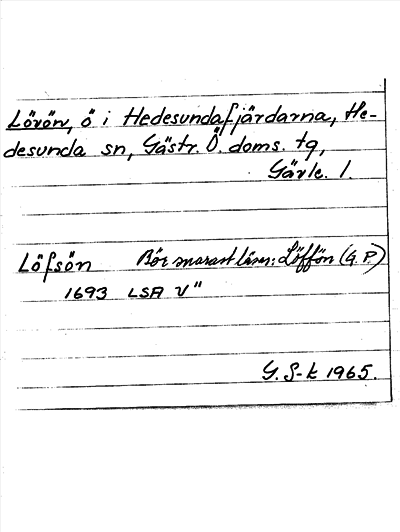 Lövön, ö i Hedesundafjärdarna, He-
desunda sn, Gästr. Ö. doms. tg,
Gävle. l.
Löfsön Bör snarast läsas: Löffön (G.P.)
1693 LSA V"
G. S-k 1965.